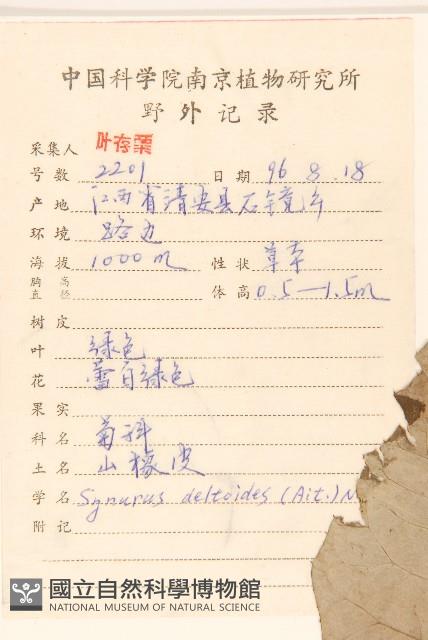 中国科学院南京植物研究所
野外记录
采集人 叶存粟
号数 2201 日期 96.8.18
产地 江西省靖安县石镜乡
环境 路边
海拔 1000m 性状 草本
胸高直径 体高 0.5—1.5m
树皮
叶 绿色
花 蕾白绿色
果实
科名 菊科
土名 山橡皮
学名 Synurus deltoides (Ait.) N
附记
國立自然科學博物館
NATIONAL MUSEUM OF NATURAL SCIENCE